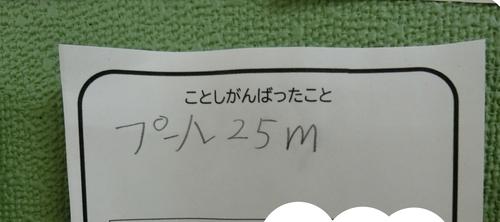 ことしがんばったこと
プール25m